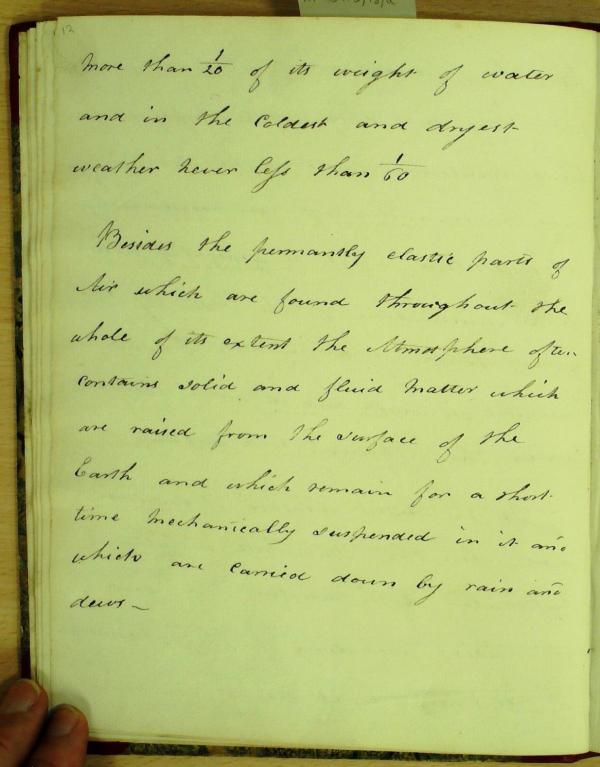 12
more than 1/20 of its weight of water
and in the coldest and dryest
weather never less than 1/60
Besides the permantly elastic parts of
Air which are found throughout the
whole of its extent the Atmosphere often
contains solid and fluid matter which
are raised from the surface of the
Earth and which remain for a short
time mechanically suspended in it and
which are carried down by rain and
dews —